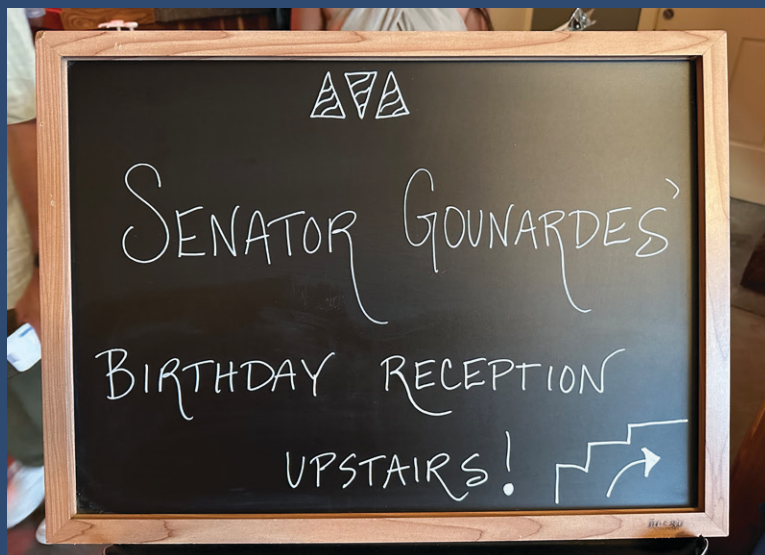 SENATOR GOUNARDES'
BIRTHDAY RECEPTION
UPSTAIRS!